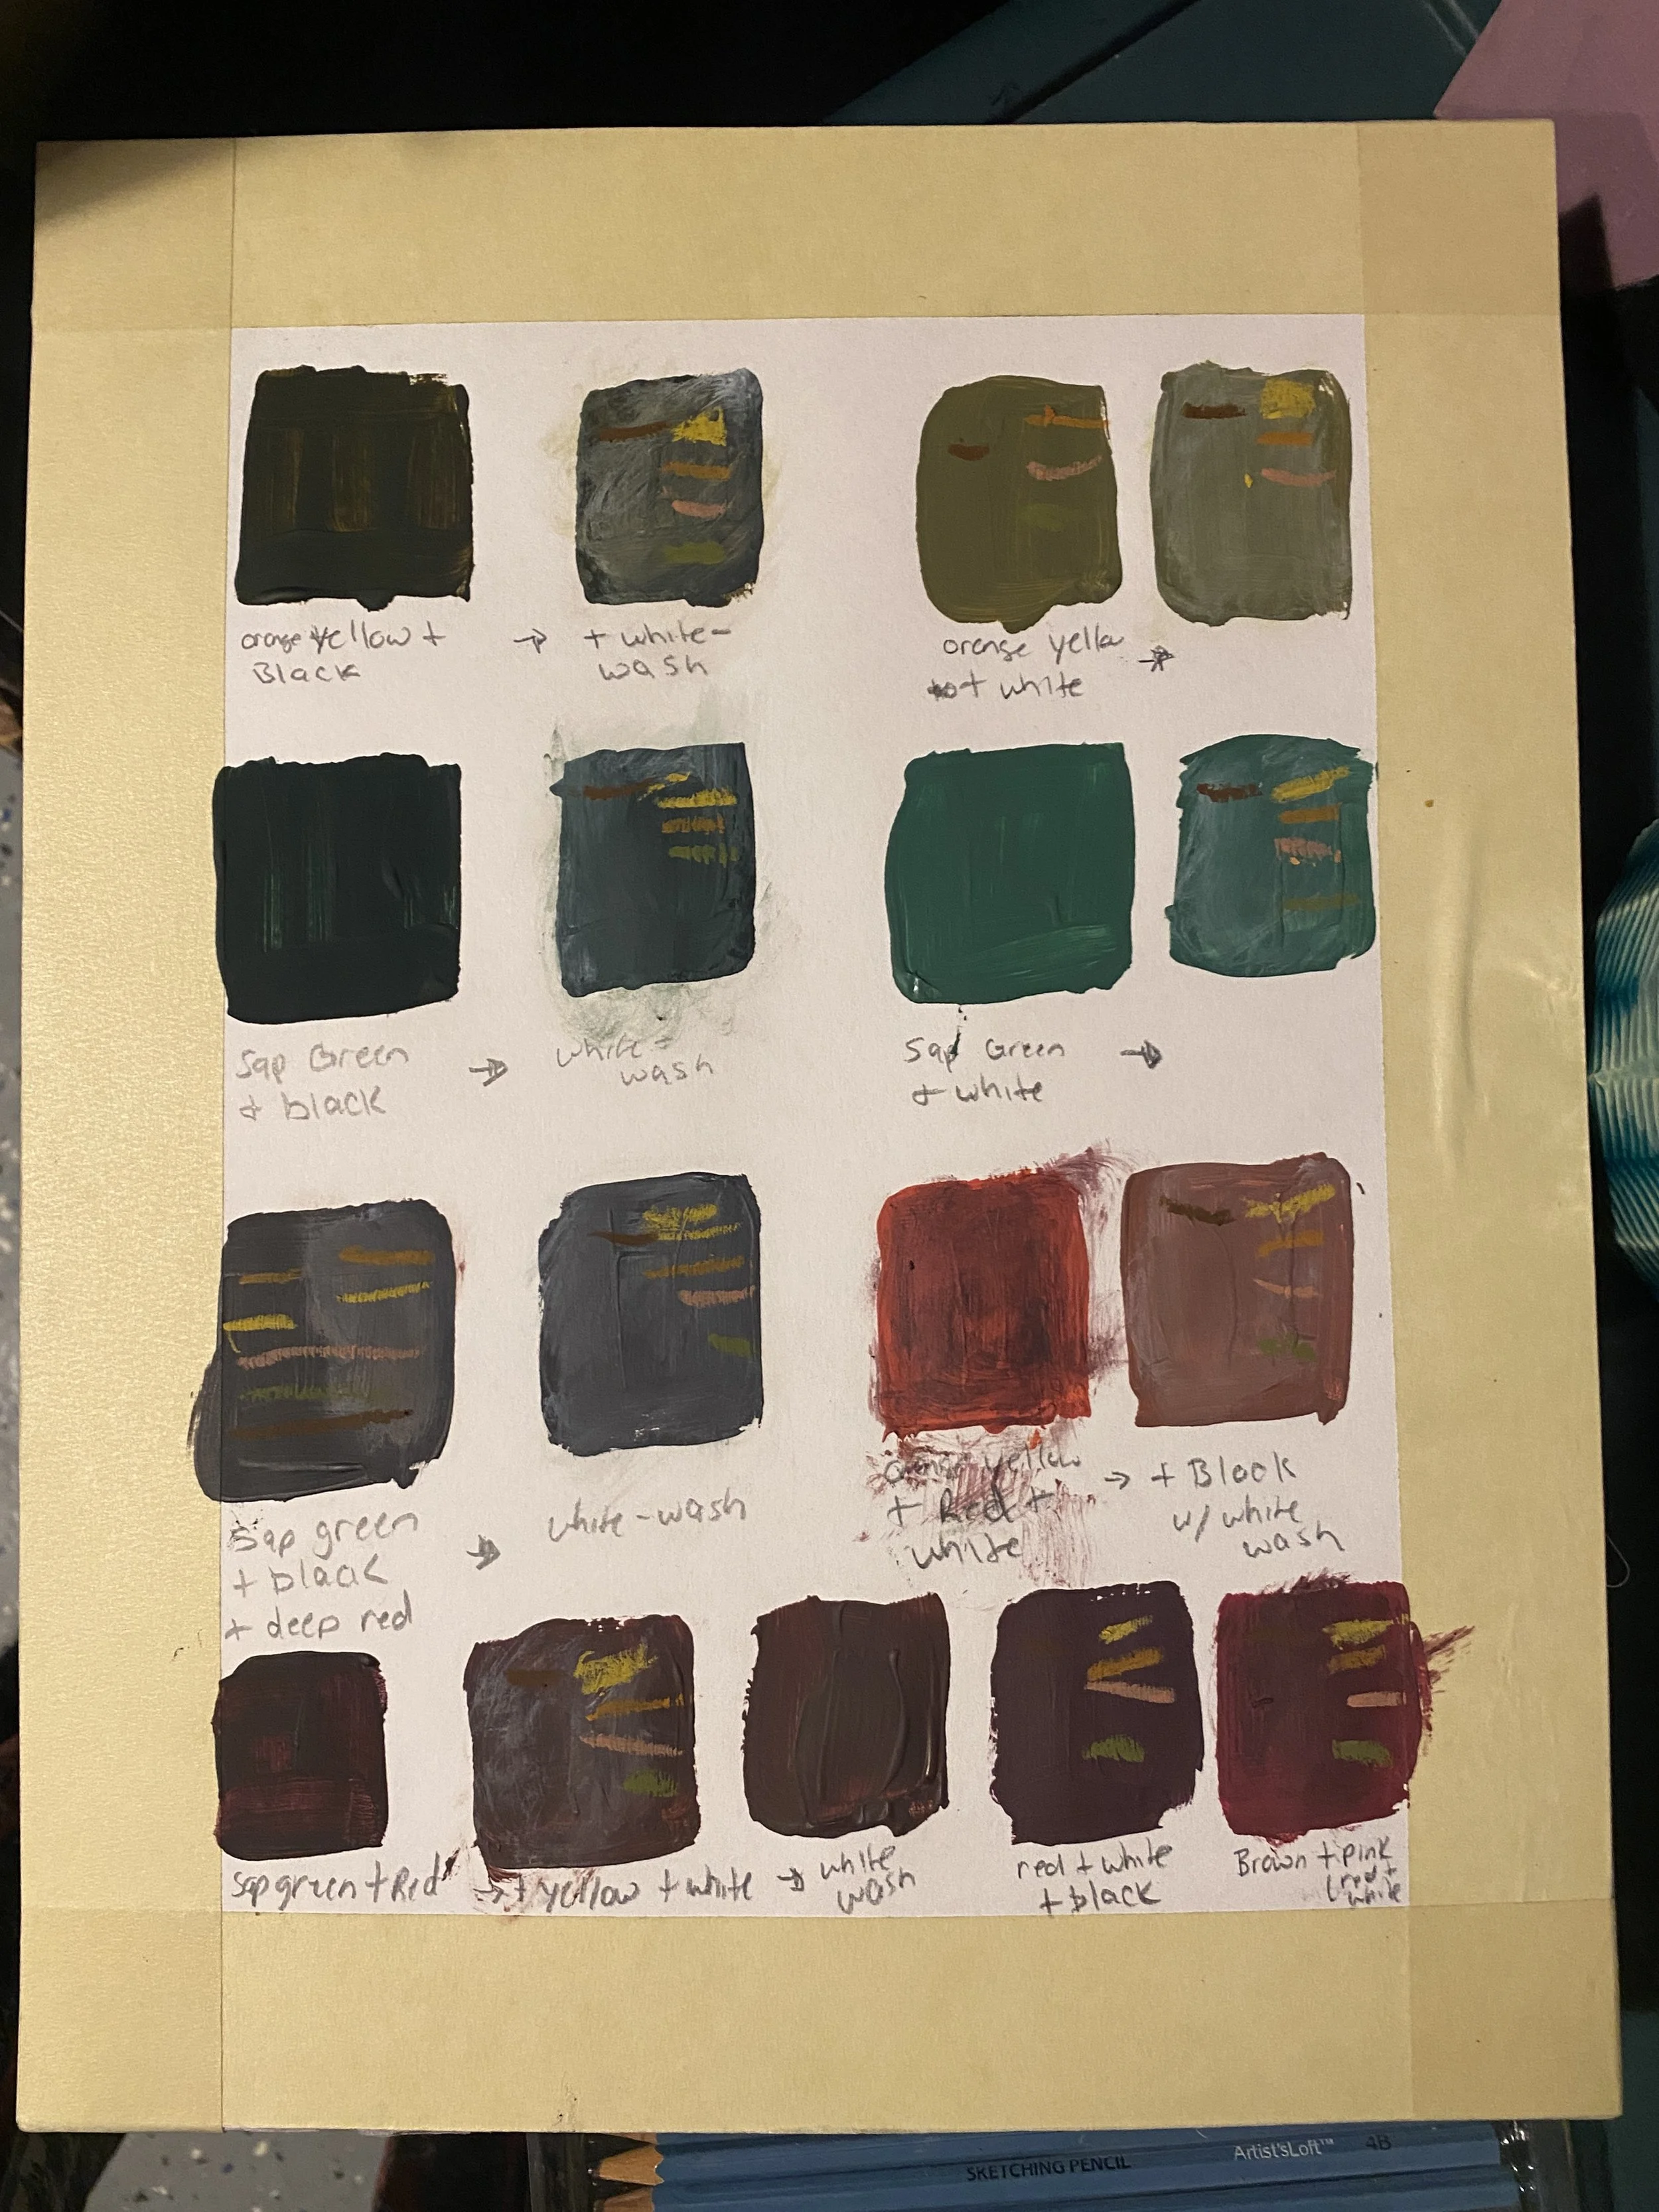 orange yellow +
Black
→ + white-
wash
orange yellow →
+ white
Sap Green
+ black
→ white-
wash
Sap Green →
+ white
Sap green
+ black
+ deep red
→ white-wash
orange yellow
+ Red +
white
→ + Black
w/ white
wash
Sap green + Red
→ + yellow + white
→ white
wash
red + white
+ black
Brown + pink
(red +
white
SKETCHING PENCIL Artist'sLoft™ 4B